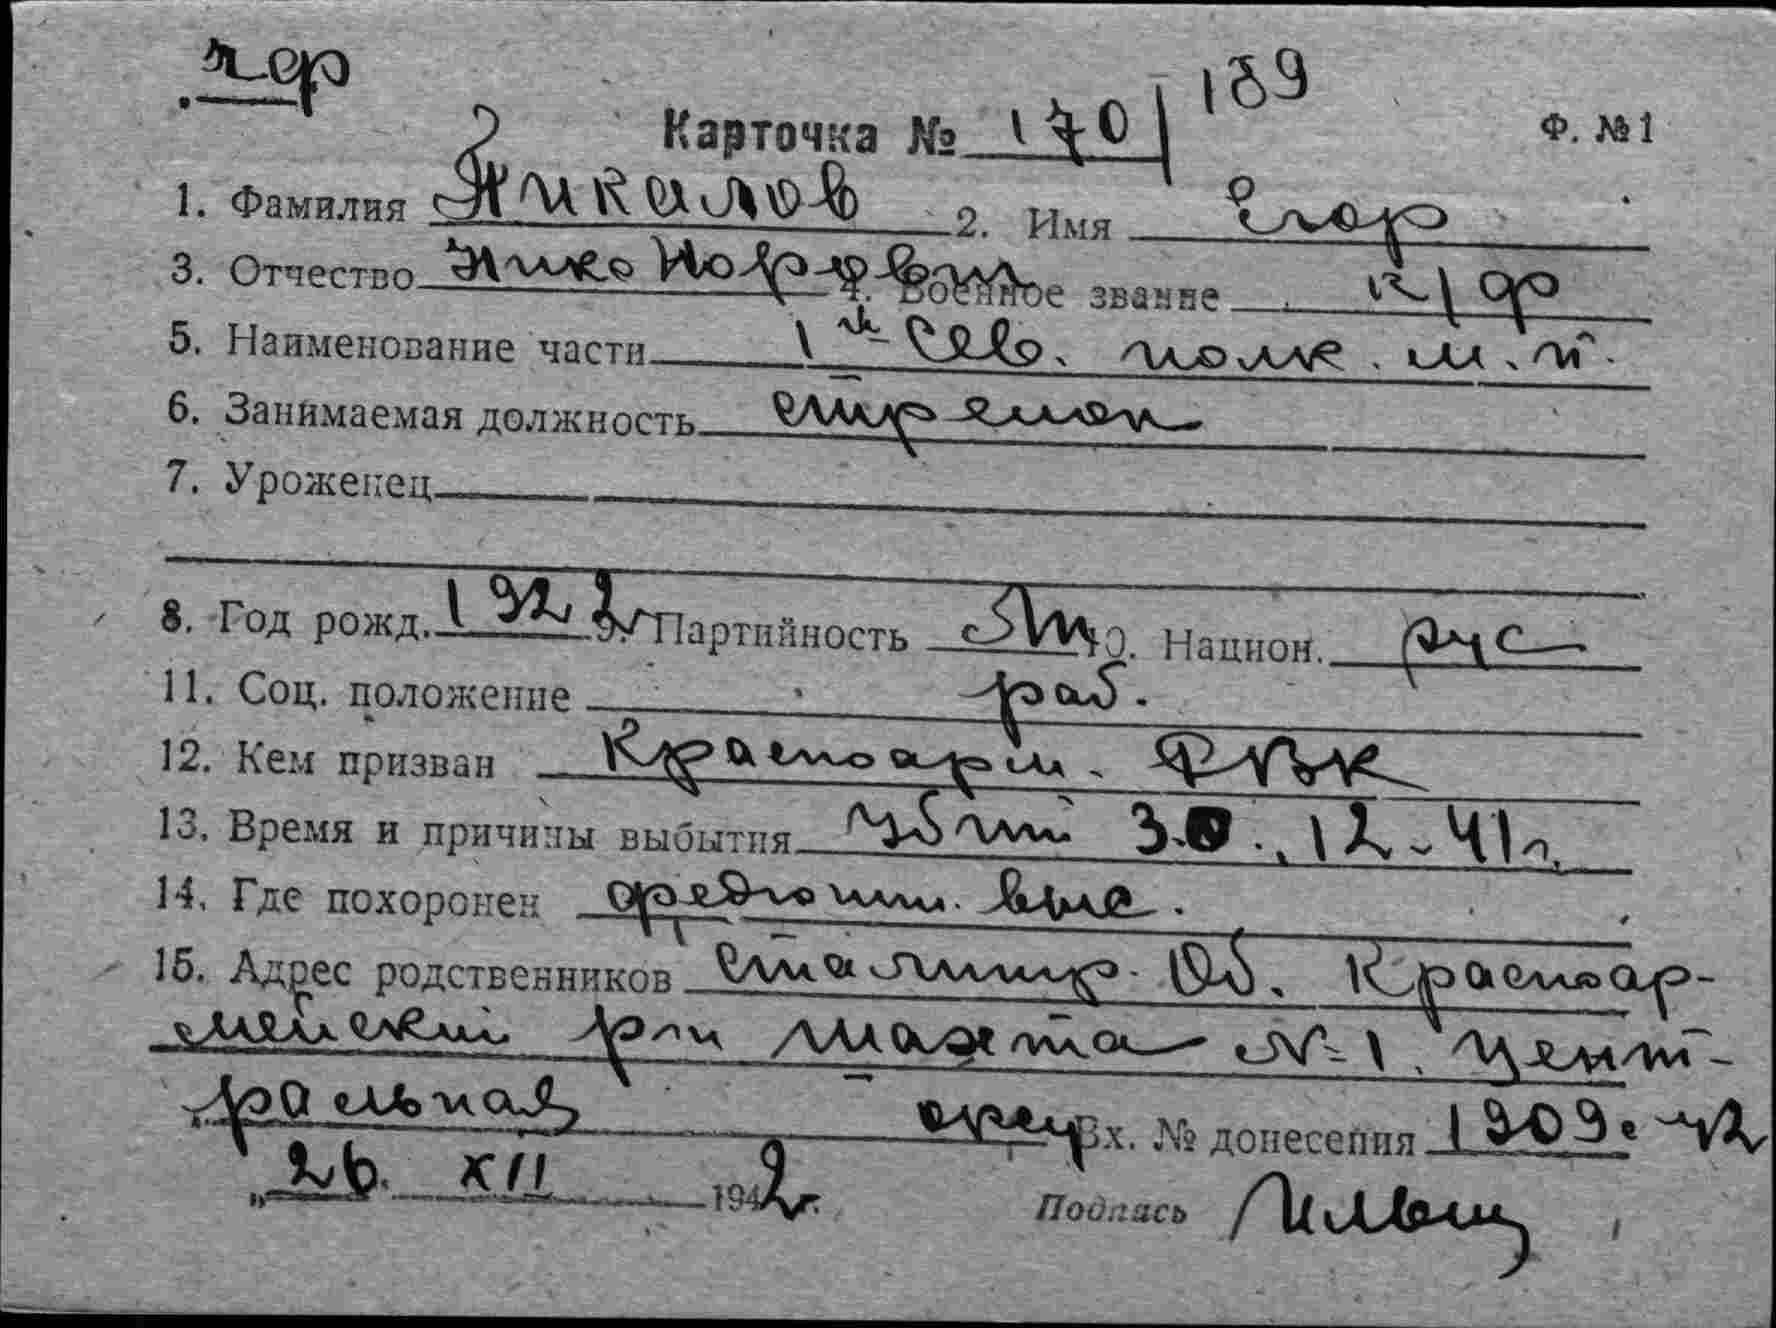 чер
Карточка № 170/189
Ф. №1
1. Фамилия Никалов 2. Имя Егор
3. Отчество Никонорович 4. Военное звание к/ф
5. Наименование части 1й Сев. полк. м.п.
6. Занимаемая должность стрелок
7. Уроженец
8. Год рожд. 1922 9. Партийность 10. Национ. рус
11. Соц. положение раб.
12. Кем призван Красноарм. РВК
13. Время и причины выбытия убит 30.12-41г.
14. Где похоронен выс.
15. Адрес родственников Сталинир. Об. Красноар-
мейский р-н шахта №1. Цент-
ральная Вх. № донесения 1909с-42
„26. XII 1942г.
Подпись